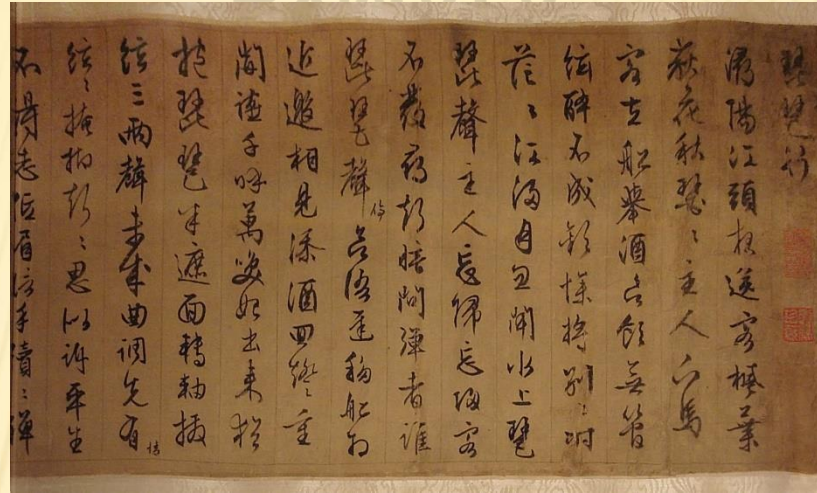 琵琶行
潯陽江頭夜送客楓葉
荻花秋瑟〻主人下馬
客在船舉酒欲飲無管
絃醉不成歡慘將別〻時
茫〻江浸月忽聞水上琵
琶聲主人忘歸忘歸客
不發尋聲暗問彈者誰
琵琶聲停欲語遲移船相
近邀相見添酒回燈重
開讌千呼萬喚始出來猶
抱琵琶半遮面轉軸撥
絃三兩聲未成曲調先有情
絃〻掩抑聲〻思似訴平生
不得志低眉信手續〻彈